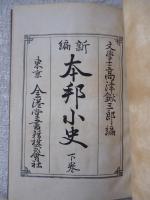 文學士高津鍬三郎編
新編
本邦小史
下卷
東京
金港堂書籍株式會社